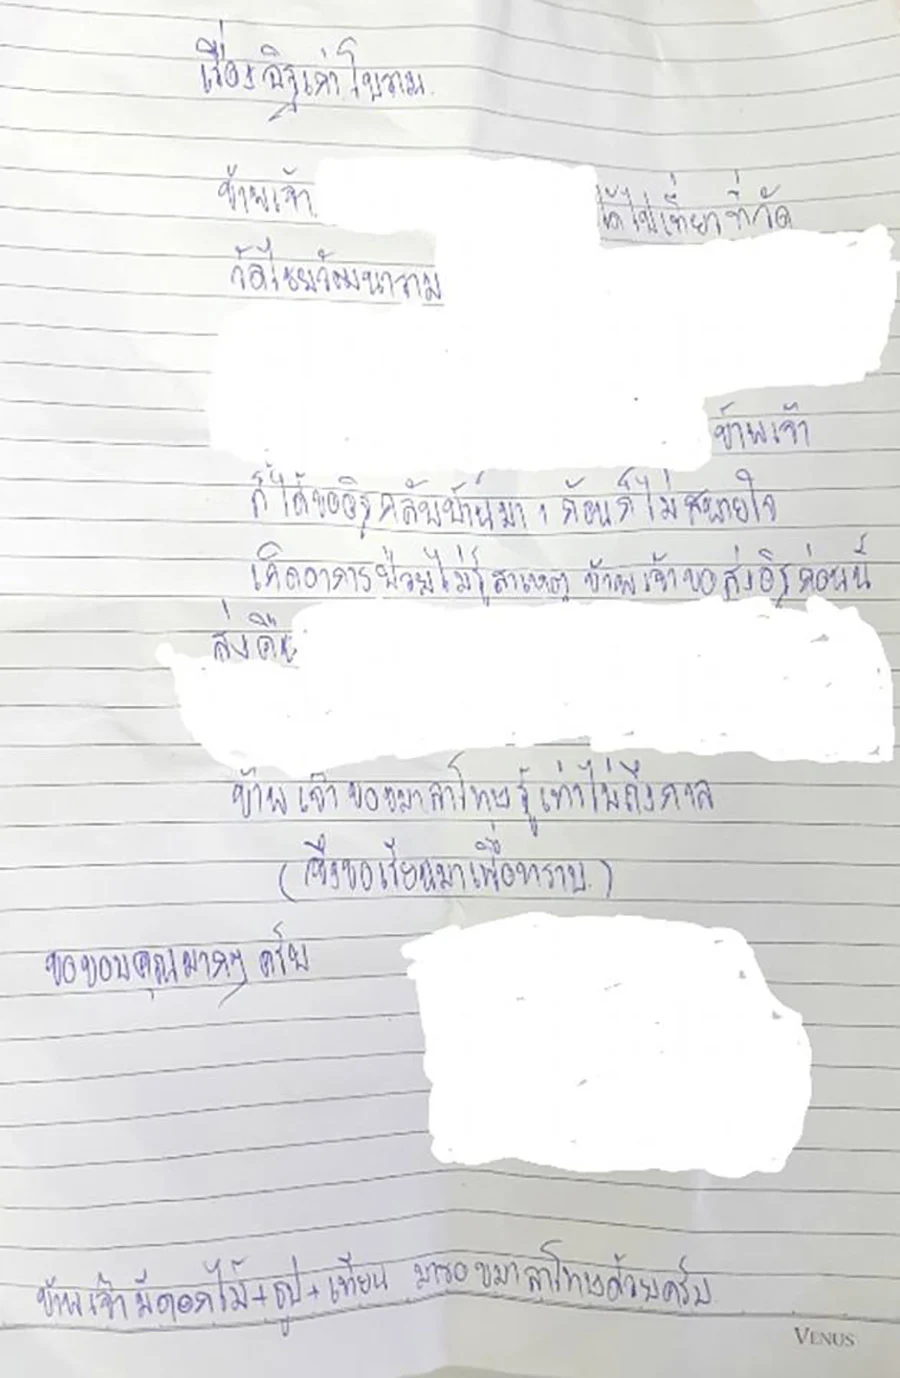 เรื่องอิฐเก่าโบราณ
ข้าพเจ้า ได้ไปเที่ยวที่วัด
วัดไชยวัฒนาราม
ข้าพเจ้า
ก็ได้ขออิฐกลับบ้านมา 1 ก้อนก็ไม่สบายใจ
เกิดอาการป่วยไม่รู้สาเหตุ ข้าพเจ้าขอส่งอิฐก่อนนี้
ส่งคืน
ข้าพเจ้าขอขมาลาโทษรู้เท่าไม่ถึงกาล
(จึงขอเรียนมาเพื่อทราบ)
ขอขอบคุณมากๆ ครับ
ข้าพเจ้ามีดอกไม้+ธูป+เทียน มาขอขมาลาโทษด้วยครับ
VENUS